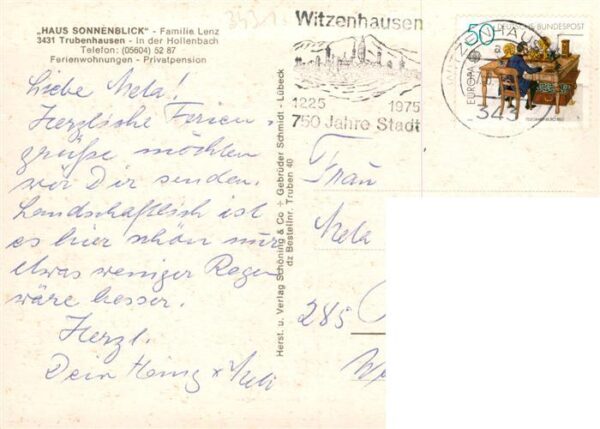 „HAUS SONNENBLICK" - Familie Lenz
3431 Trubenhausen - In der Hollenbach
Telefon: (05604) 52 87
Ferienwohnungen - Privatpension
Liebe Meta!
Herzlische Ferien-
grüße möchten
wir Dir senden.
Landschaftlich ist
es hier schön nur
etwas weniger Regen
wäre besser.
Herzl.
Dein Heinz
Herst. u. Verlag Schöning & Co + Gebrüder Schmidt - Lübeck
dz Bestellnr. Truben 40
Witzenhausen
1225 1975
750 Jahre Stadt
50 DEUTSCHE BUNDESPOST
EUROPA
WITZENHAUSEN
a
343
Frau
Meta
285